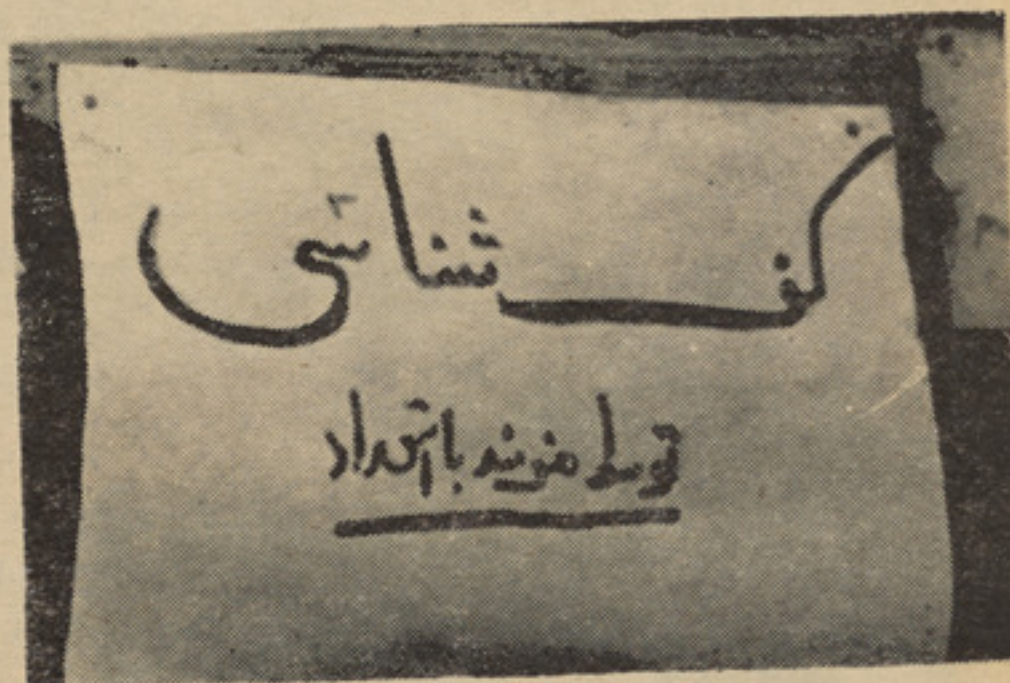 کف شناسی
توسط هنرمند با استعداد